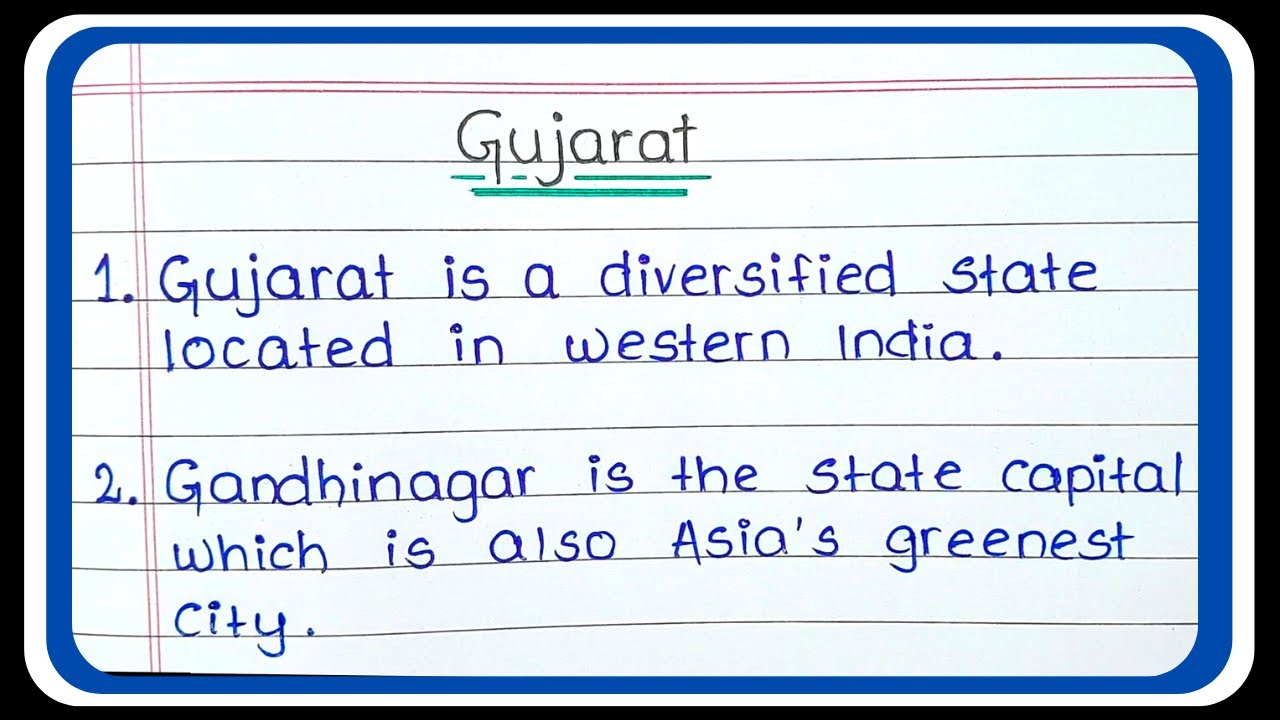 Gujarat
1. Gujarat is a diversified state
located in western India.
2. Gandhinagar is the state capital
which is also Asia's greenest
city.